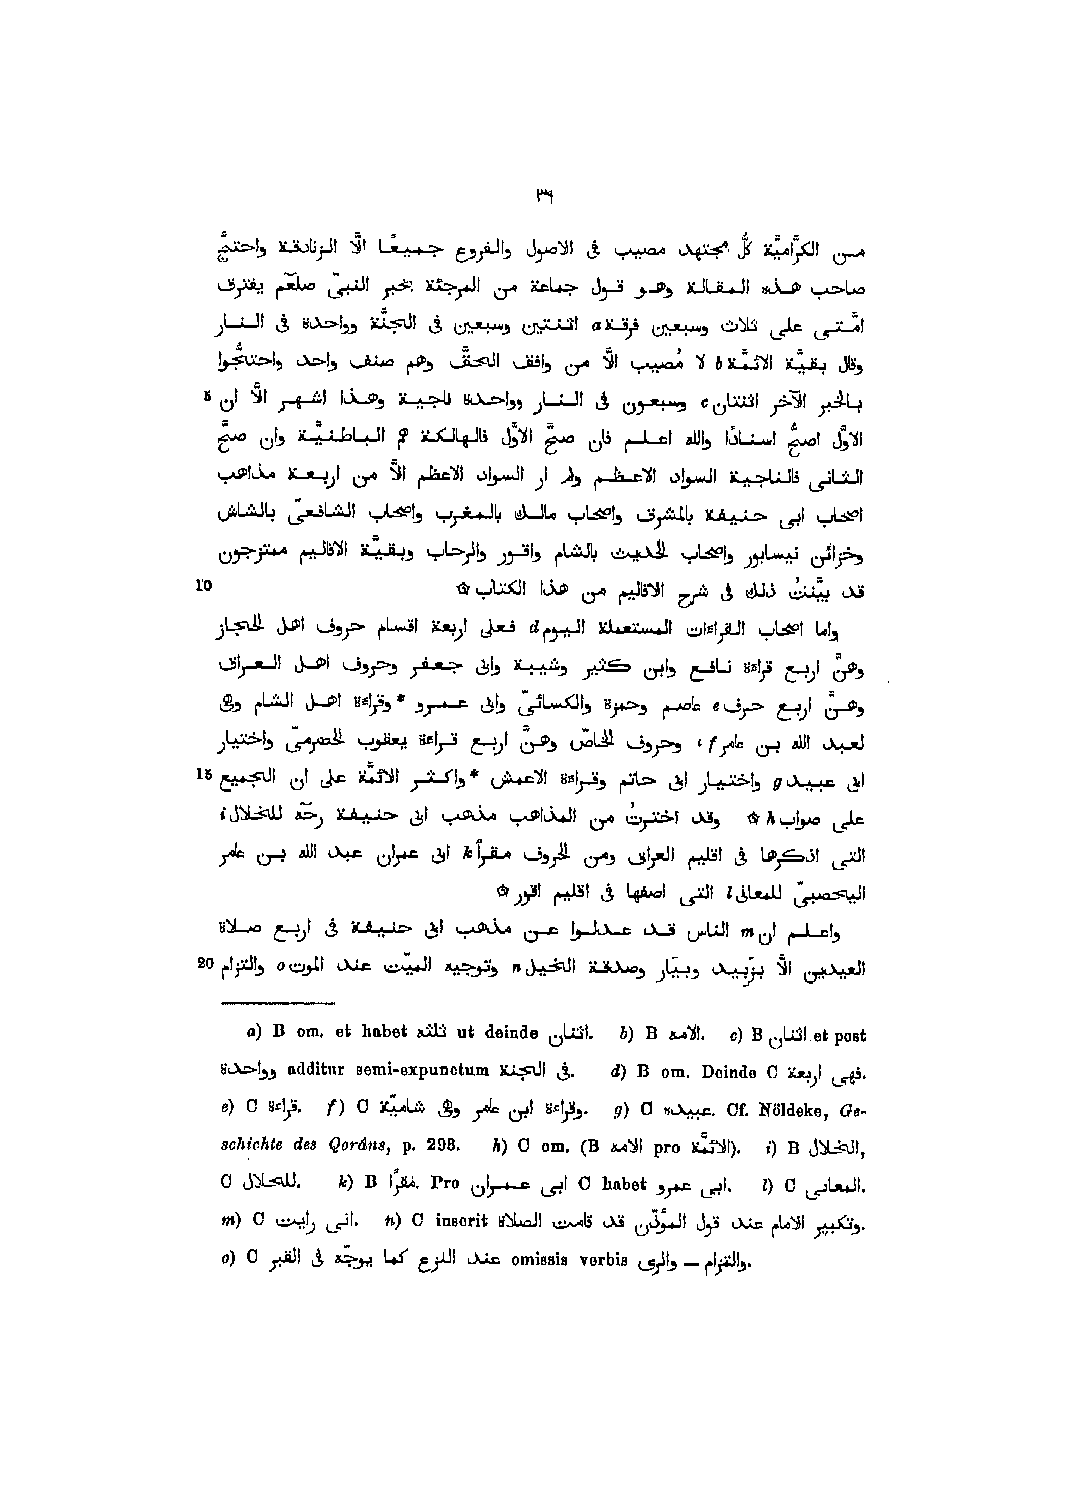 ٣٩
مـن الكَرَّاميَّة كلُّ مجتهد مصيب فى الاصول والفروع جـميـعًـا الَّا الـزنادقـة واحتجَّ
صاحب هـذه المـقـالـة وهـو قـول جماعة من المرجئة بخبر النبىّ صلعم يفترق
امّتـى على ثلاث وسبعين فرقة a اثنتين وسبعين فى الجنَّة وواحدة فى النـار
وقال بـقـيَّـة الائـمَّـة b لا مُصيب الَّا من وافق الـحقَّ وهم صنف واحد واحتجُّوا
بـالخبر الآخر اثنتان c وسبعـون فى الـنـار وواحـدة ناجيـة وهـذا اشـهـر الَّا ان 5
الاوَّل اصحُّ اسـنـادًا والله اعـلـم فان صحَّ الاوَّل فالـهالـكـة هم البـاطـنـيَّـة وان صحَّ
الـثـانـى فالـناجيـة السواد الاعـظـم ولم ار السواد الاعظم الَّا من اربـعـة مذاهب
اصحاب ابى حنيفة بالمشرق واصحاب مالك بالمغرب واصحاب الشافعىّ بالشاش
وخزائن نيسابور واصحاب الحديث بالشام واقـور والرحاب وبـقـيَّـة الاقاليم ممتزجون
قد بيَّنتُ ذلك فى شرح الاقاليم من هذا الكتاب ۞ 10
واما اصحاب القراءات المستعملة اليوم d فعلى اربعة اقسام حروف اهل الحجاز
وهنَّ اربع قراءة نـافـع وابن كـثـيـر وشيبة وابى جعفر وحروف اهـل الـعـراق
وهـنَّ اربـع حرف e عاصم وحمزة والكسائىّ وابى عـمـرو *وقراءة اهـل الشام وهى
لعبد الله بـن عامر f، وحروف الخاصّ وهنَّ اربع قـراءة يعقوب الحضرمىّ واختيار
ابى عبيد g واخـتـيـار ابى حاتم وقـراءة الاعمش *واكـثـر الائـمَّـة على ان الجميع 15
على صواب h ۞ وقد اخترتُ من المذاهب مذهب ابى حنيفة رحَه للخلال i
التى اذكرها فى اقليم العراق ومن الحروف مـقـرأ k ابى عمران عبد الله بـن عامر
اليحصبىّ للمعانى l التى اصفها فى اقليم اقور ۞
واعـلـم ان m الناس قـد عـدلـوا عـن مذهب ابى حنيفـة فى اربع صـلاة
العيدين الَّا بزَبيد وبيَار وصدقة الخيل n وتوجيه الميّت عند الموت o والتزام 20
a) B om. et habet ثلثه ut deinde اثنان. b) B الامه. c) B اثنان et post
وواحدة additur semi-expunctum فى الجنة. d) B om. Deinde C فهى اربعة.
e) C قراءة. f) C وقراءة ابن عامر وهى شاميّة. g) C عبيدة. Cf. Nöldeke, Ge-
schichte des Qorâns, p. 298. h) C om. (B الامه pro الائمَّة). i) B الخلال,
C للخلال. k) B مقرأ. Pro ابى عـمـران C habet ابى عمرو. l) C المعانى.
m) C انى رايت. n) C inserit وتكبير الامام عند قول المؤذّن قد قامت الصلاة.
o) C عند النزع كما يوجّه فى القبر omissis verbis والتزام — والرى.